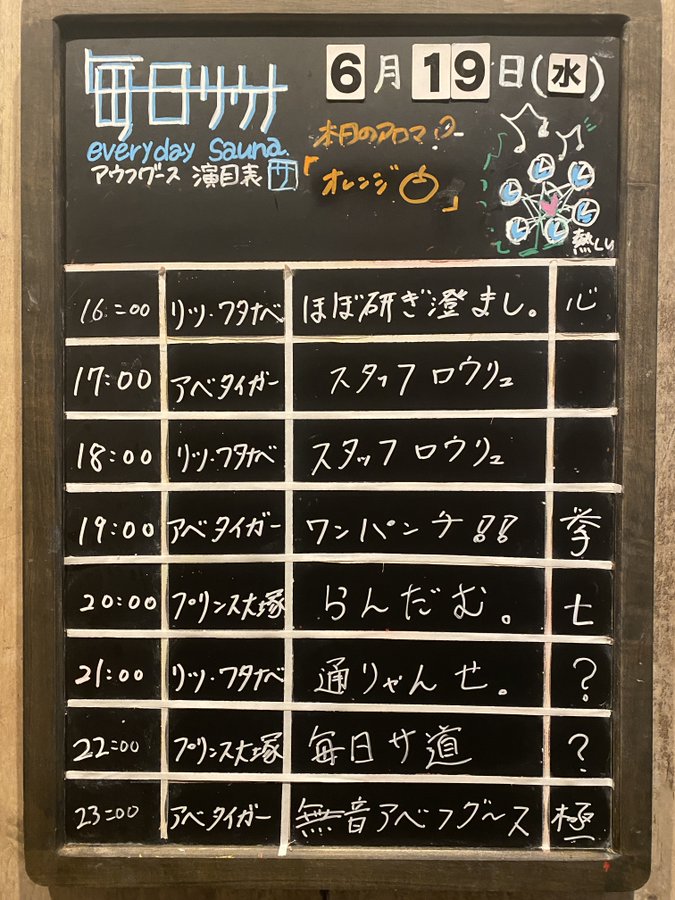 毎日サウナ
6月19日(水)
everyday Sauna.
アウフグース 演目表 サ
本日のアロマ
「オレンジ」
熱しい
16:00 リッツ・ワタナベ ほぼ研ぎ澄まし。 心
17:00 アベタイガー スタッフロウリュ
18:00 リッツ・ワタナベ スタッフロウリュ
19:00 アベタイガー ワンパンチ!! 拳
20:00 プリンス大塚 らんだむ。 七
21:00 リッツ・ワタナベ 通りゃんせ。 ?
22:00 プリンス大塚 毎日サ道 ?
23:00 アベタイガー 無音アベフグース 極